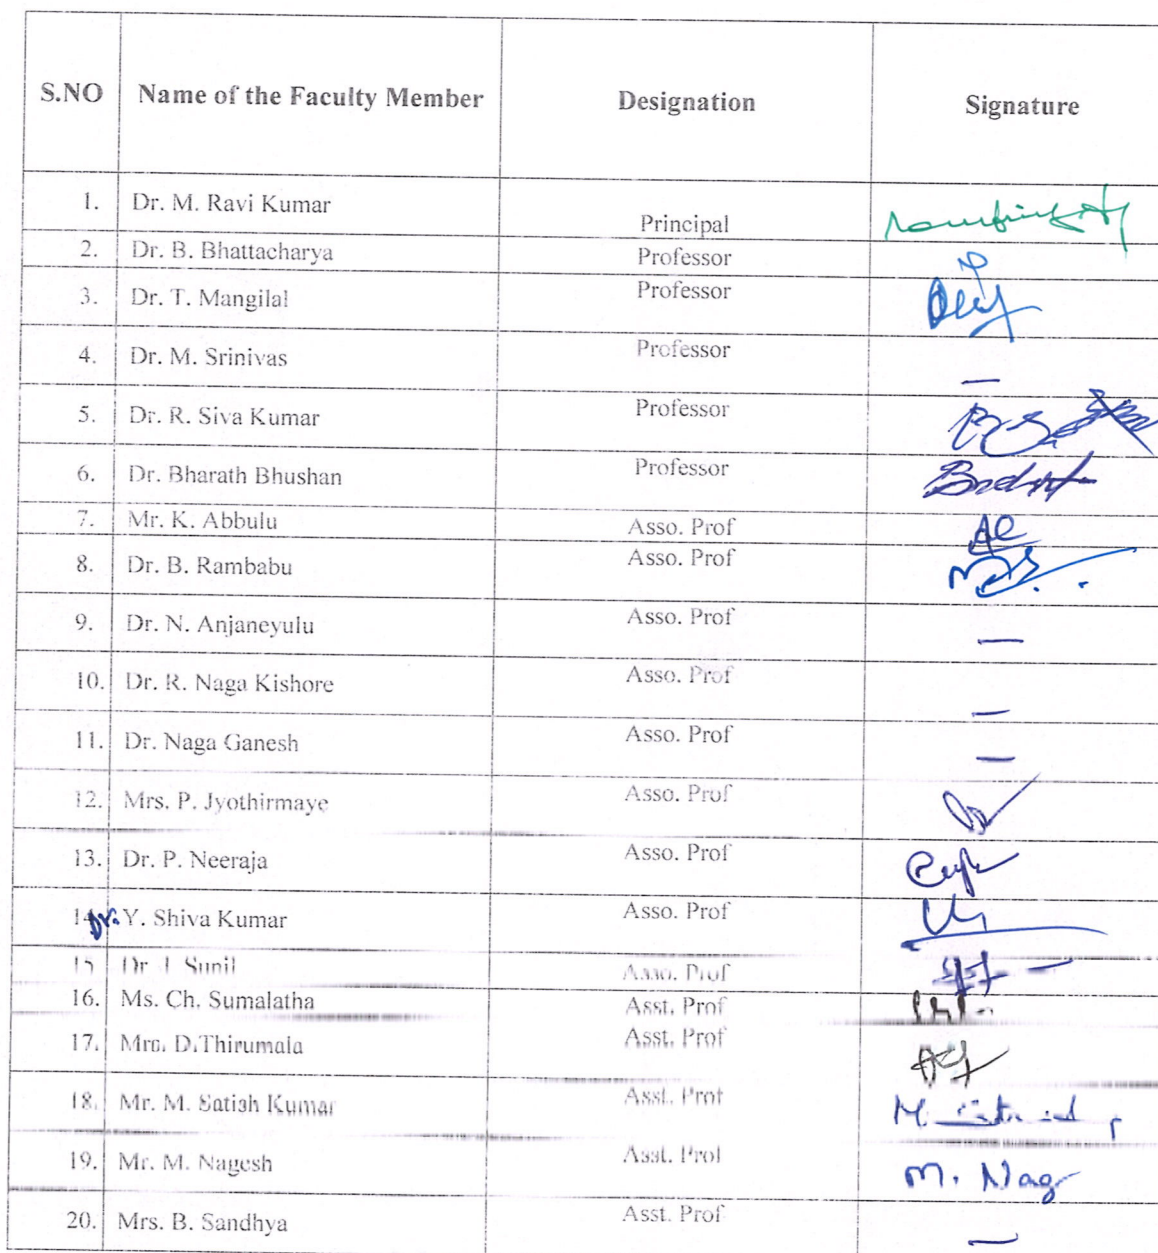 S.NO Name of the Faculty Member Designation Signature
1. Dr. M. Ravi Kumar Principal
2. Dr. B. Bhattacharya Professor
3. Dr. T. Mangilal Professor
4. Dr. M. Srinivas Professor —
5. Dr. R. Siva Kumar Professor
6. Dr. Bharath Bhushan Professor
7. Mr. K. Abbulu Asso. Prof
8. Dr. B. Rambabu Asso. Prof
9. Dr. N. Anjaneyulu Asso. Prof —
10. Dr. R. Naga Kishore Asso. Prof —
11. Dr. Naga Ganesh Asso. Prof —
12. Mrs. P. Jyothirmaye Asso. Prof
13. Dr. P. Neeraja Asso. Prof
14. Dr. Y. Shiva Kumar Asso. Prof
15 Dr. J. Sunil Asso. Prof
16. Ms. Ch. Sumalatha Asst. Prof
17. Mrs. D.Thirumala Asst. Prof
18. Mr. M. Satish Kumar Asst. Prof
19. Mr. M. Nagesh Asst. Prof M. Nag
20. Mrs. B. Sandhya Asst. Prof —